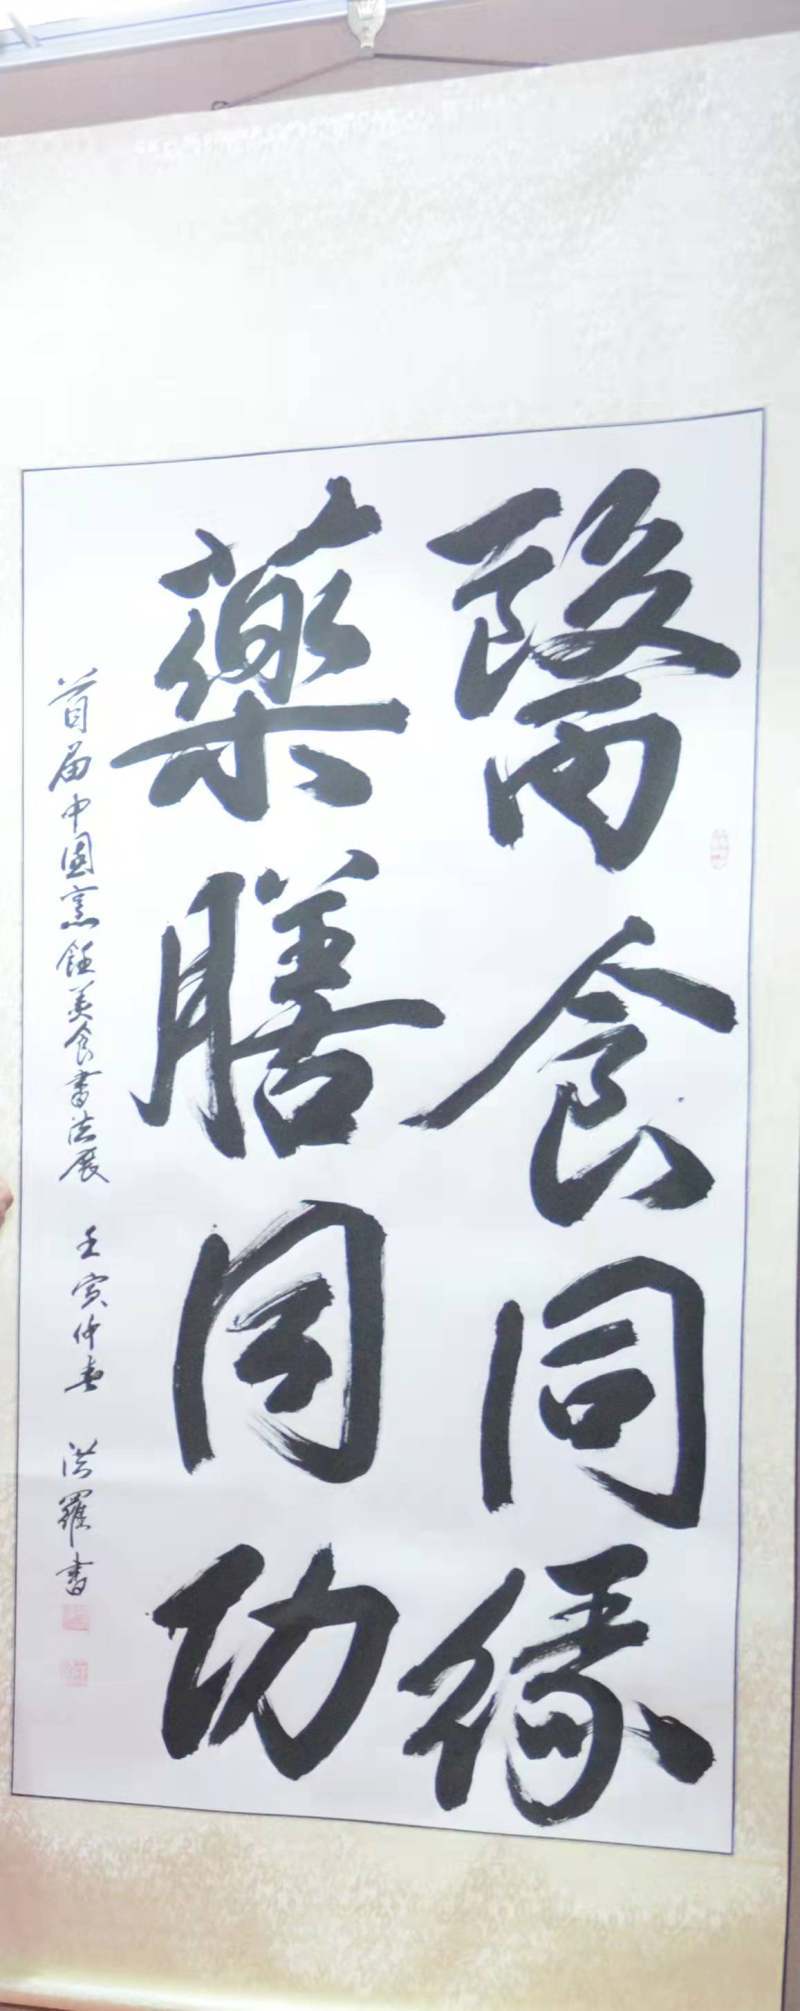 醫食同緣
藥膳同功
首届中國烹飪美食書法展 壬寅仲春 洪羅書